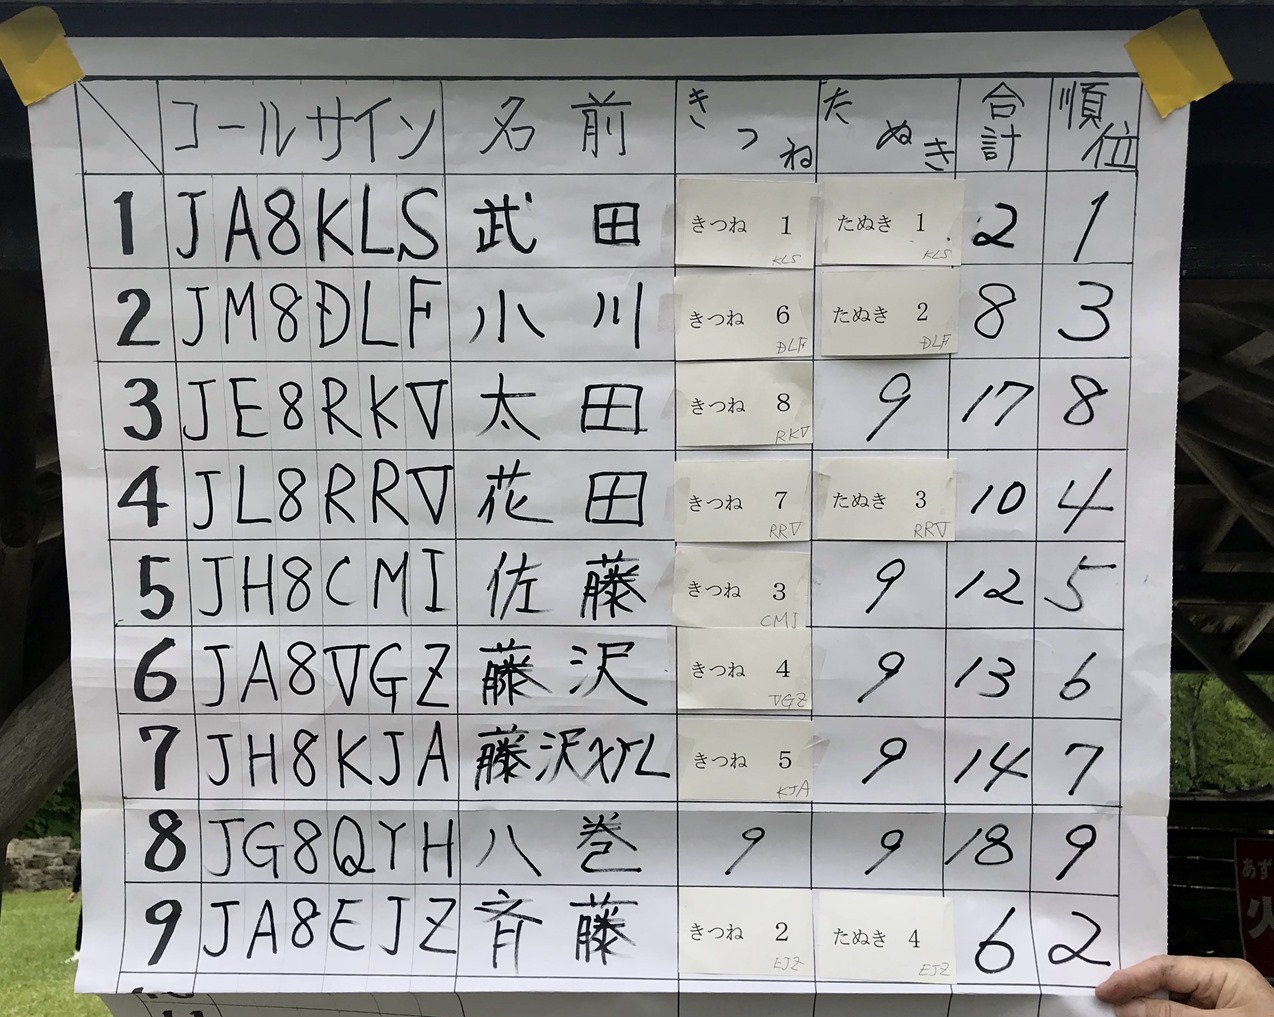 コールサイン 名前 きつね たぬき 合計 順位
1 JA8KLS 武田 きつね 1 KLS たぬき 1 KLS 2 1
2 JM8DLF 小川 きつね 6 DLF たぬき 2 DLF 8 3
3 JE8RKV 太田 きつね 8 RKV 9 17 8
4 JL8RRV 花田 きつね 7 RRV たぬき 3 RRV 10 4
5 JH8CMI 佐藤 きつね 3 CMI 9 12 5
6 JA8VGZ 藤沢 きつね 4 VGZ 9 13 6
7 JH8KJA 藤沢XYL きつね 5 KJA 9 14 7
8 JG8QYH 八巻 9 9 18 9
9 JA8EJZ 斉藤 きつね 2 EJZ たぬき 4 EJZ 6 2
あず
火